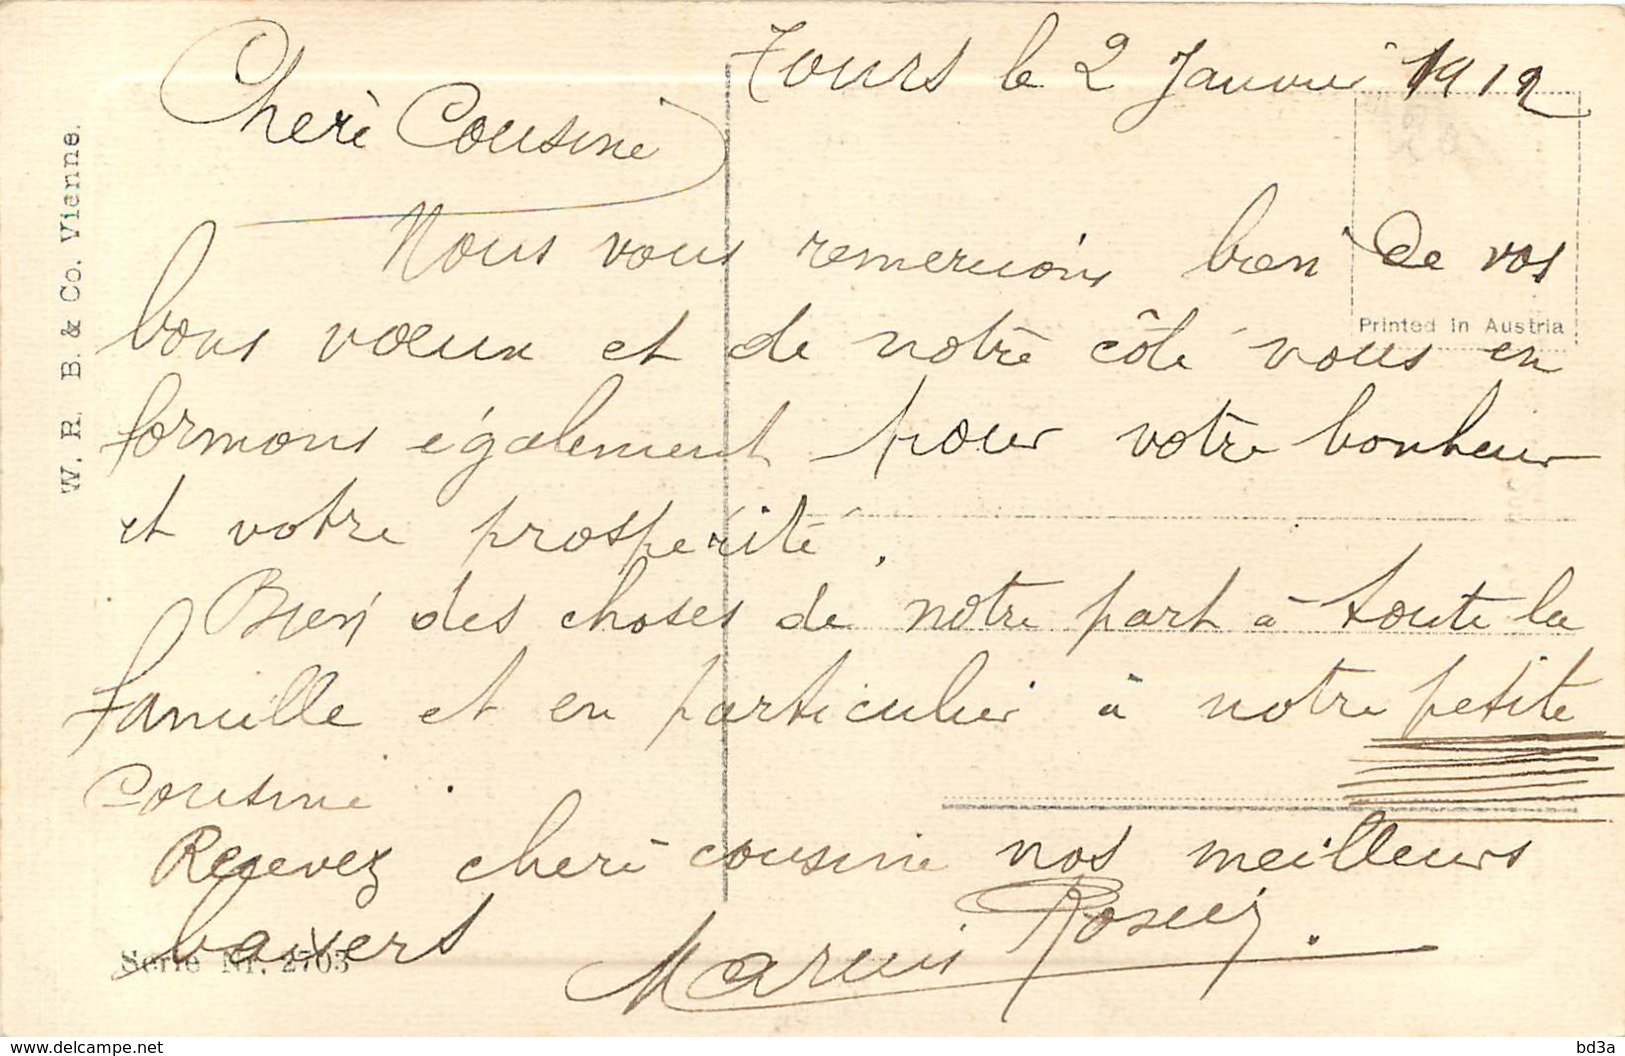 Tours le 2 Janvier 1912
Cherè Cousine
Nous vous remercions bien de vos
bons vœux et de notre côté vous en
formons également pour votre bonheur
et votre prospérité.
Bien des choses de notre part à toute la
famille et en particulier à notre petite
cousine.
Recevez cherè cousine nos meilleurs
baisers
W. R. B. & Co. Vienne.
Printed in Austria
Serie Nr. 2703
www.delcampe.net
bd3a